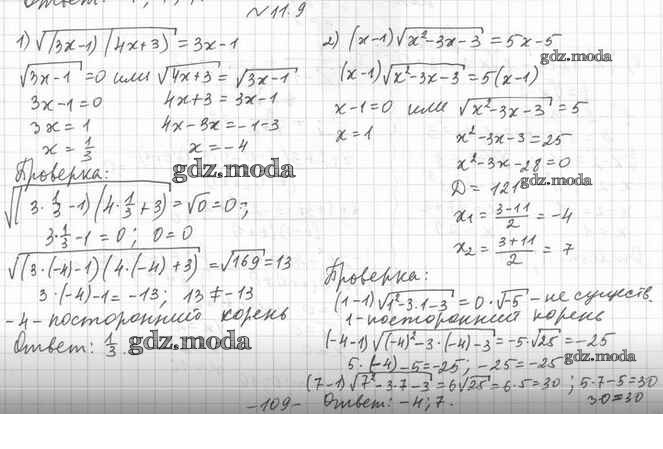 Ответ:
№11.9
1) √((3x-1)(4x+3)) = 3x-1
√(3x-1) = 0 или √(4x+3) = √(3x-1)
3x-1=0 4x+3 = 3x-1
3x = 1 4x-3x = -1-3
x = 1/3 x = -4
Проверка:
√((3·1/3-1)(4·1/3+3)) = √0 = 0;
3·1/3-1 = 0; 0=0
√((3·(-4)-1)(4·(-4)+3)) = √169 = 13
3·(-4)-1 = -13; 13 ≠ -13
-4-посторонний корень
Ответ: 1/3.
2) (x-1)√(x²-3x-3) = 5x-5
(x-1)√(x²-3x-3) = 5(x-1)
x-1=0 или √(x²-3x-3) = 5
x=1 x²-3x-3=25
x²-3x-28=0
D = 121
x₁ = (3-11)/2 = -4
x₂ = (3+11)/2 = 7
Проверка:
(1-1)√(1²-3·1-3) = 0·√-5 - не существ.
1-посторонний корень
(-4-1)√((-4)²-3·(-4)-3) = -5·√25 = -25
5·(-4)-5=-25; -25=-25
(7-1)√(7²-3·7-3) = 6√25 = 6·5=30; 5·7-5=30
30=30
Ответ: -4; 7.
-109-
gdz.moda
gdz.moda
gdz.moda
gdz.moda
gdz.moda